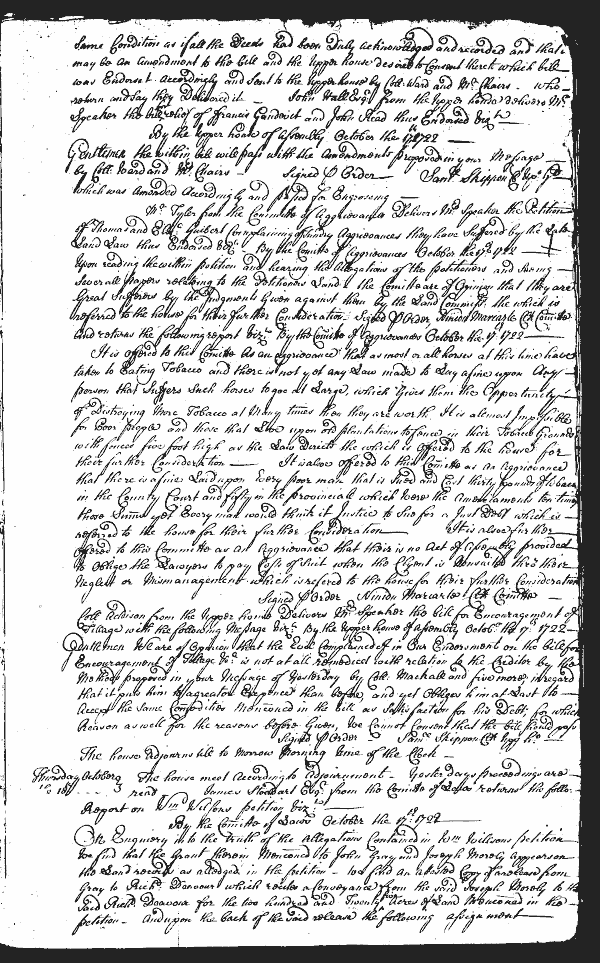 Same Condition as if all the Deeds had been Duly acknowledged and recorded and that it
may be an Amendment to the bill and the upper house desired to Consent thereto which bill
was Endorst accordingly and Sent to the upper house by Coll Ward and Mr. Chairs - who
return and say they Delivered it John Hall Esqr. from the upper house Delivers Mr.
Speaker the bill relief of Francis and John Head thus Endorsed vizt
By the upper house of assembly October the 17th 1722
Gentlemen the within bill will pass with the Amendments proposed in your Message
by Coll. Ward and Mr. Chairs Signed P Order Saml. Skippon
which was Amended Accordingly and past for Engrossing
Mr. Tyler from the Committe of Aggrievances Delivers Mr. Speaker the Petition
of Thomas and Eliz. Guibert Complaining of Sundry Aggrievances they have Suffered by the Late
Land Law thus Endorsed vizt. By the Comitte of Aggrievances October the 17th 1722
Upon reading the within petition and hearing the Allegations of the petitioners and Seeing
Severall papers relateing to the Petitioners Land the Comitte are of Opinion that they are
Great Sufferers by the Judgment Given against them by the Land Commissrs. the which is
referred to the house for their further Consideration Signed P Order Ninian Mariarte Clk Comitte
and returns the following report vizt By the Comitte of Aggrievances October the 17th 1722
It is offered to this Comitte As an aggrievance that as most or all horses at this time have
taken to Eating Tobacco and there is not yet any Law made to Lay a fine upon Any
person that Suffers Such horses to goe at Large, which Gives them the Oppertunity
of Distroying More Tobacco at Many times than they are worth. It is almost Impossible
for Poor people and those that Live upon old plantations to fence in their Tobacco Ground
with fences five foot high as the Law Directs the which is offered to the house for
their further Consideration It is alsoe offered to this Comitte as an Aggrievance
that there is a fine Laid upon Every poor man that is Sued and Cast thirty pounds of tobacco
in the County Court and fifty in the provinciall which were the Amerciaments ten times
those Sums yet Every man would think it Justice to Sue for a Just Debt which is
referred to the house for their further Consideration It is alsoe further
offered to this Committe as An Aggrievance that their is no Act of Assembly provided
to Oblige the Lawyers to pay Costs of Suit when the Clyent is Nonsuite thro their
Neglect or Mismanagement which is refered to the house for their further Consideration
Signed P Order Ninian Mariarte Clk Comitte
Coll Addison from the Upper house Delivers Mr. Speaker the bill for Encouragement of
Tillage with the following Message vizt. By the Upper house of Assembly Octobr. the 17th 1722
Gentlemen We are of Opinion that the Evil Complained off in Our Endorsment on the bill for
Encouragement of Tillage &c. is not at all remedied with relation to the Creditor by the
Method proposed in your Message of Yesterday by Coll. Mackall and five more in regard
that it puts him to a greater Expence than before and yet Obliges him at Last to
Accept the Same Comodities Menconed in the bill as Satisfaction for his Debt, for which
Reason as well for the reasons before Given, we Cannot Consent that the bill should pass
Signed P Order Saml Skippon Clk Uppr ho.
The house Adjourns till to Morrow Morning Nine of the Clock
Thursday October The house meet According to Adjournment - Yesterdays proceedings are
18th read James Stoddart Esqr. from the Comitte of Laws returns the follo:
Report on Wm Willsons petition vizt:
By the Comitte of Laws October the 17th 1722
On Enquiery into the truth of the allegations Contained in Wm Willsons petition
We find that the Grant therein Menconed to John Gray and Joseph Morely Appears on
the Land records as alledged in the petition - We find an attested Copy of a release from
Gray to Richd. Deavour which recites a Conveyance from the said Joseph Morely to the
Said Richd. Deavour for the two hundred and Twenty Acres of Land Menconed in the
petition - And upon the back of the Said release the following assignment